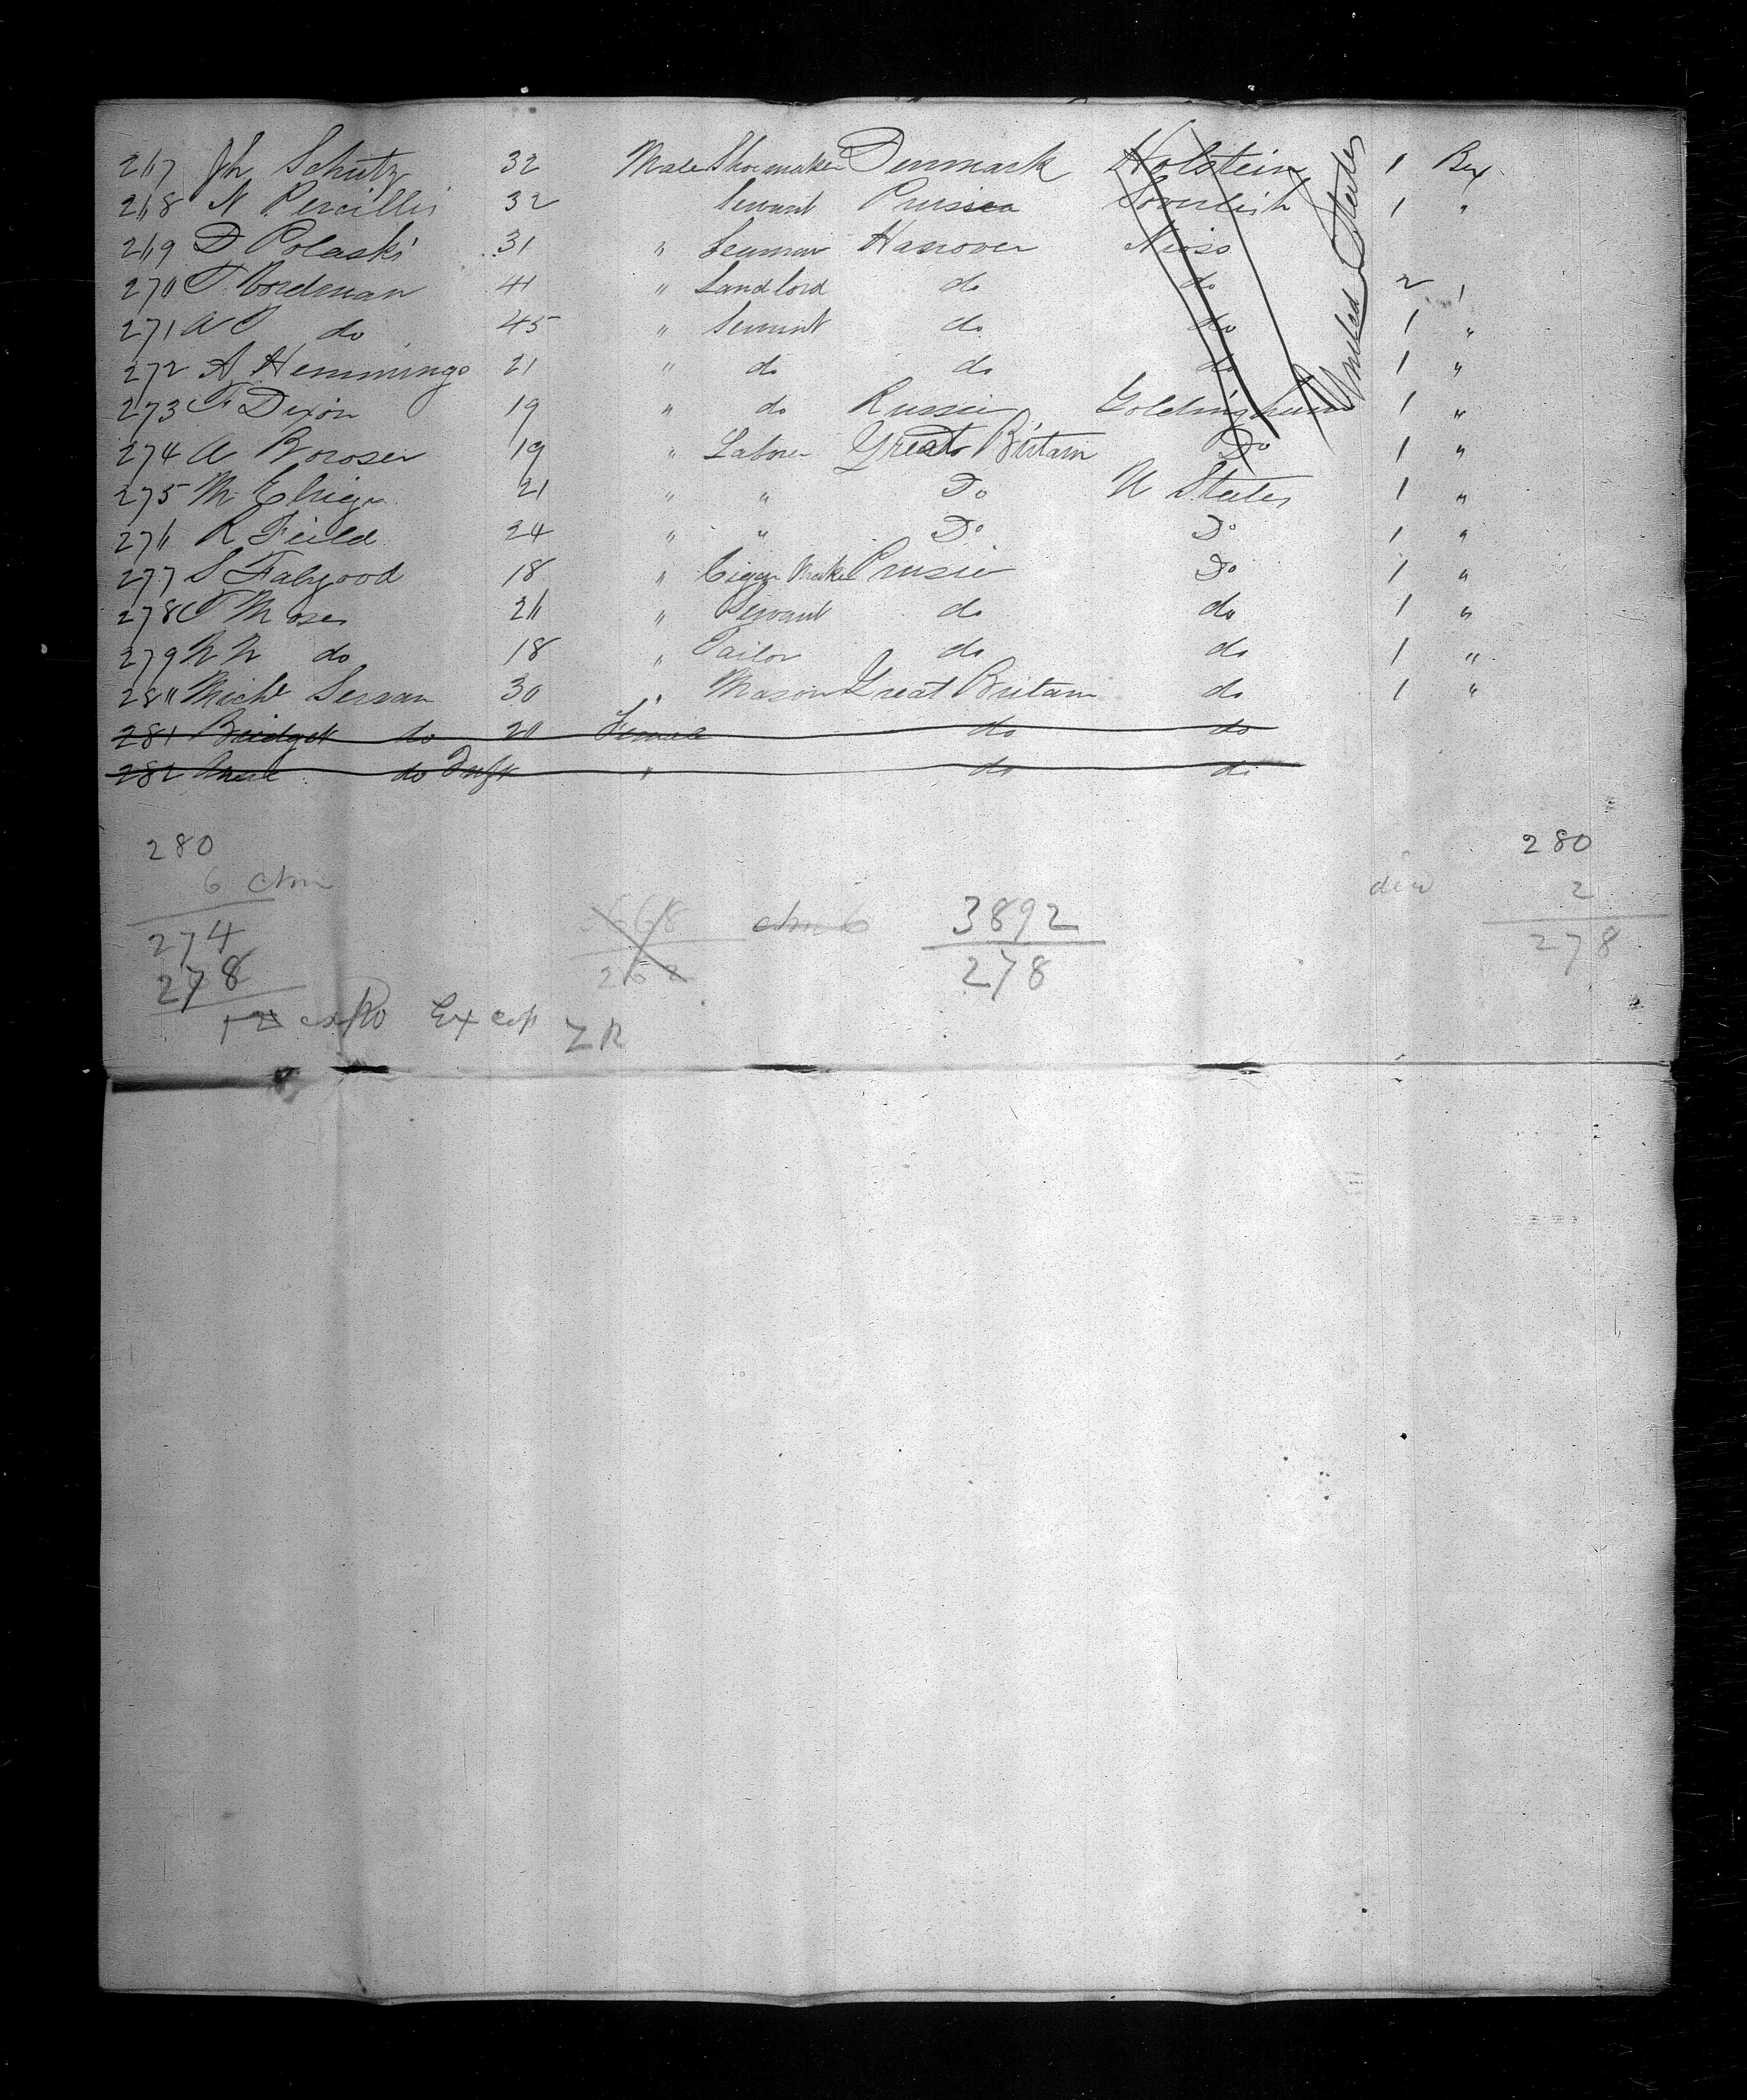 267 Jh Schutz 32 Male Shoemaker Denmark Holstein 1 Box
268 N Percillis 32 Servant Prussia 1 "
269 D Polaski 31 " Seaman Hanover 1 "
270 T Bordman 41 " Landlord do do 2 "
271 A P do 45 " Servant do do 1 "
272 A Hemmings 21 " do do do 1 "
273 F Dixon 19 " do Russia 1 "
274 A Boroser 19 " Labrer Great Britain Do 1 "
275 M 21 " " Do U States 1 "
276 R Feild 24 " " Do Do 1 "
277 S Falzgood 18 " Cigar Maker Prusia Do 1 "
278 T Moses 26 " Servant do do 1 "
279 N N do 18 " Tailor do do 1 "
280 Michl Sersan 30 " Mason Great Britain do 1 "
281 Bridget do 20 Female do do
282 do Inft " do do
United States
280 280
6 2
274 3892 278
278 278